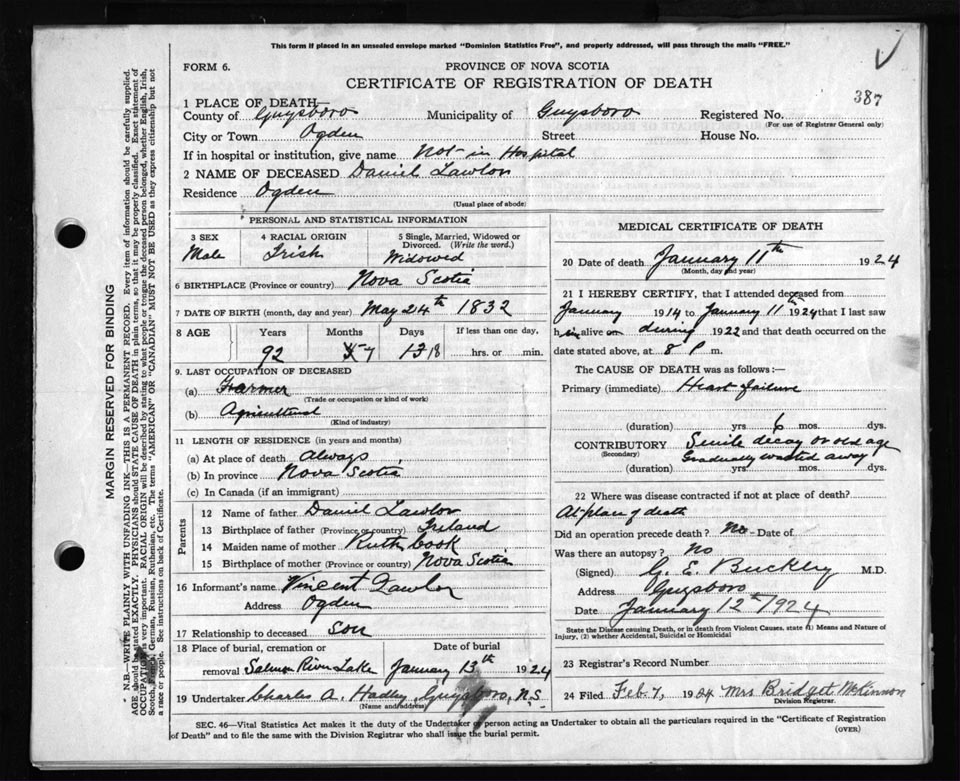 This form if placed in an unsealed envelope marked "Dominion Statistics Free", and properly addressed, will pass through the mails "FREE."
FORM 6.
PROVINCE OF NOVA SCOTIA
CERTIFICATE OF REGISTRATION OF DEATH
387
1 PLACE OF DEATH—
County of Guysboro Municipality of Guysboro Registered No.
(For use of Registrar General only)
City or Town Ogden Street House No.
If in hospital or institution, give name Not in Hospital
2 NAME OF DECEASED Daniel Lawlor
Residence Ogden
(Usual place of abode)
PERSONAL AND STATISTICAL INFORMATION
3 SEX 4 RACIAL ORIGIN 5 Single, Married, Widowed or Divorced. (Write the word.)
Male Irish Widowed
6 BIRTHPLACE (Province or country) Nova Scotia
7 DATE OF BIRTH (month, day and year) May 24th 1832
8 AGE Years Months Days If less than one day,
92 7 18 hrs. or min.
9. LAST OCCUPATION OF DECEASED
(a) Farmer
(Trade or occupation or kind of work)
(b) Agricultural
(Kind of industry)
11 LENGTH OF RESIDENCE (in years and months)
(a) At place of death Always
(b) In province Nova Scotia
(c) In Canada (if an immigrant)
Parents
12 Name of father Daniel Lawlor
13 Birthplace of father (Province or country) Ireland
14 Maiden name of mother Ruth Cook
15 Birthplace of mother (Province or country) Nova Scotia
16 Informant's name Vincent Lawlor
Address Ogden
17 Relationship to deceased son
18 Place of burial, cremation or Date of burial
removal Salmon River Lake January 13th 1924
19 Undertaker Charles A. Hadley, Guysboro, N.S.
(Name and address)
MEDICAL CERTIFICATE OF DEATH
20 Date of death January 11th 1924
(Month, day and year)
21 I HEREBY CERTIFY, that I attended deceased from
January 1914 to January 11th 1924 that I last saw
him alive on during 1922 and that death occurred on the
date stated above, at 8 P m.
The CAUSE OF DEATH was as follows:—
Primary (immediate) Heart failure
(duration) yrs 6 mos. dys.
CONTRIBUTORY Senile decay or old age
(Secondary) Gradually wasted away
(duration) yrs. mos. dys.
22 Where was disease contracted if not at place of death?
At place of death
Did an operation precede death? No Date of
Was there an autopsy? No
(Signed) G. E. Buckley M.D.
Address Guysboro
Date January 12th 1924
State the Disease causing Death, or in death from Violent Causes, state (1) Means and Nature of
Injury, (2) whether Accidental, Suicidal or Homicidal
23 Registrar's Record Number
24 Filed Feb 7, 1924 Mrs Bridget McKinnon
Division Registrar.
SEC. 46—Vital Statistics Act makes it the duty of the Undertaker or person acting as Undertaker to obtain all the particulars required in the "Certificate of Registration
of Death" and to file the same with the Division Registrar who shall issue the burial permit.
(OVER)
MARGIN RESERVED FOR BINDING
N.B.—WRITE PLAINLY WITH UNFADING INK—THIS IS A PERMANENT RECORD. Every item of information should be carefully supplied.
AGE should be stated EXACTLY. PHYSICIANS should STATE CAUSE OF DEATH in plain terms, so that it may be properly classified. Exact statement of
OCCUPATION is very important. RACIAL ORIGIN will be described by stating to what people or tongue the deceased person belonged, whether English, Irish,
Scotch, French, German, Russian, Ruthenian, etc. The terms "AMERICAN" OR "CANADIAN" MUST NOT BE USED as they express citizenship but not
a race or people. See instructions on back of Certificate.